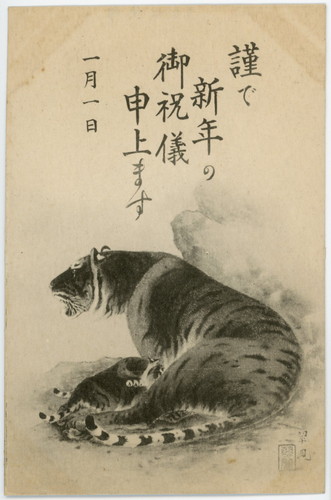 謹で
新年の
御祝儀
申上ます
一月一日